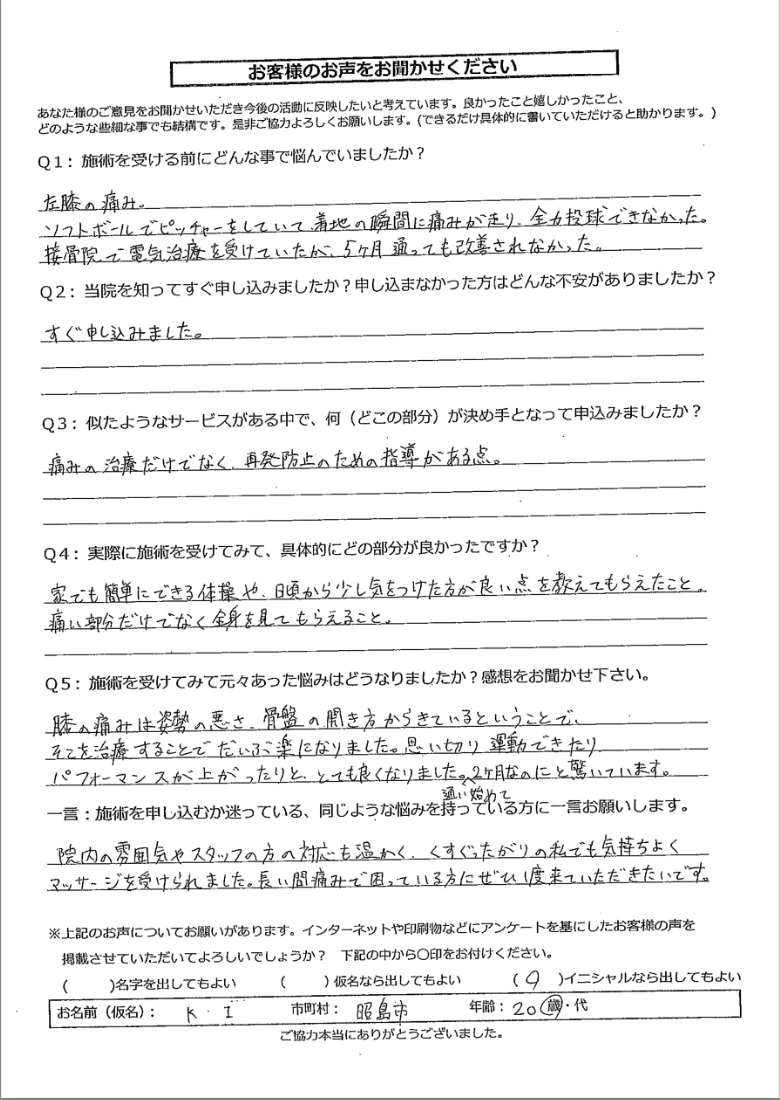 お客様のお声をお聞かせください
あなた様のご意見をお聞かせいただき今後の活動に反映したいと考えています。良かったこと嬉しかったこと、
どのような些細な事でも結構です。是非ご協力よろしくお願いします。(できるだけ具体的に書いていただけると助かります。)
Q1:施術を受ける前にどんな事で悩んでいましたか?
左膝の痛み。
ソフトボールでピッチャーをしていて、着地の瞬間に痛みが走り、全力投球できなかった。
接骨院で電気治療を受けていたが、5ヶ月通っても改善されなかった。
Q2:当院を知ってすぐ申し込みましたか?申し込まなかった方はどんな不安がありましたか?
すぐ申し込みました。
Q3:似たようなサービスがある中で、何(どこの部分)が決め手となって申込みましたか?
痛みの治療だけでなく、再発防止のための指導がある点。
Q4:実際に施術を受けてみて、具体的にどの部分が良かったですか?
家でも簡単にできる体操や、日頃から少し気をつけた方が良い点を教えてもらえたこと。
痛い部分だけでなく全身を見てもらえること。
Q5:施術を受けてみて元々あった悩みはどうなりましたか?感想をお聞かせ下さい。
膝の痛みは姿勢の悪さ、骨盤の開き方からきているということで、
そこを治療することでだいぶ楽になりました。思い切り運動できたり
パフォーマンスが上がったりと、とても良くなりました。2ヶ月なのにと驚いています。
通い始めて
一言:施術を申し込むか迷っている、同じような悩みを持っている方に一言お願いします。
院内の雰囲気やスタッフの方の対応も温かく、くすぐったがりの私でも気持ちよく
マッサージを受けられました。長い間痛みで困っている方にぜひ1度来ていただきたいです。
※上記のお声についてお願いがあります。インターネットや印刷物などにアンケートを基にしたお客様の声を
掲載させていただいてよろしいでしょうか? 下記の中から○印をお付けください。
( )名字を出してもよい ( )仮名なら出してもよい (○)イニシャルなら出してもよい
お名前(仮名): K・I 市町村: 昭島市 年齢:20歳・代
ご協力本当にありがとうございました。